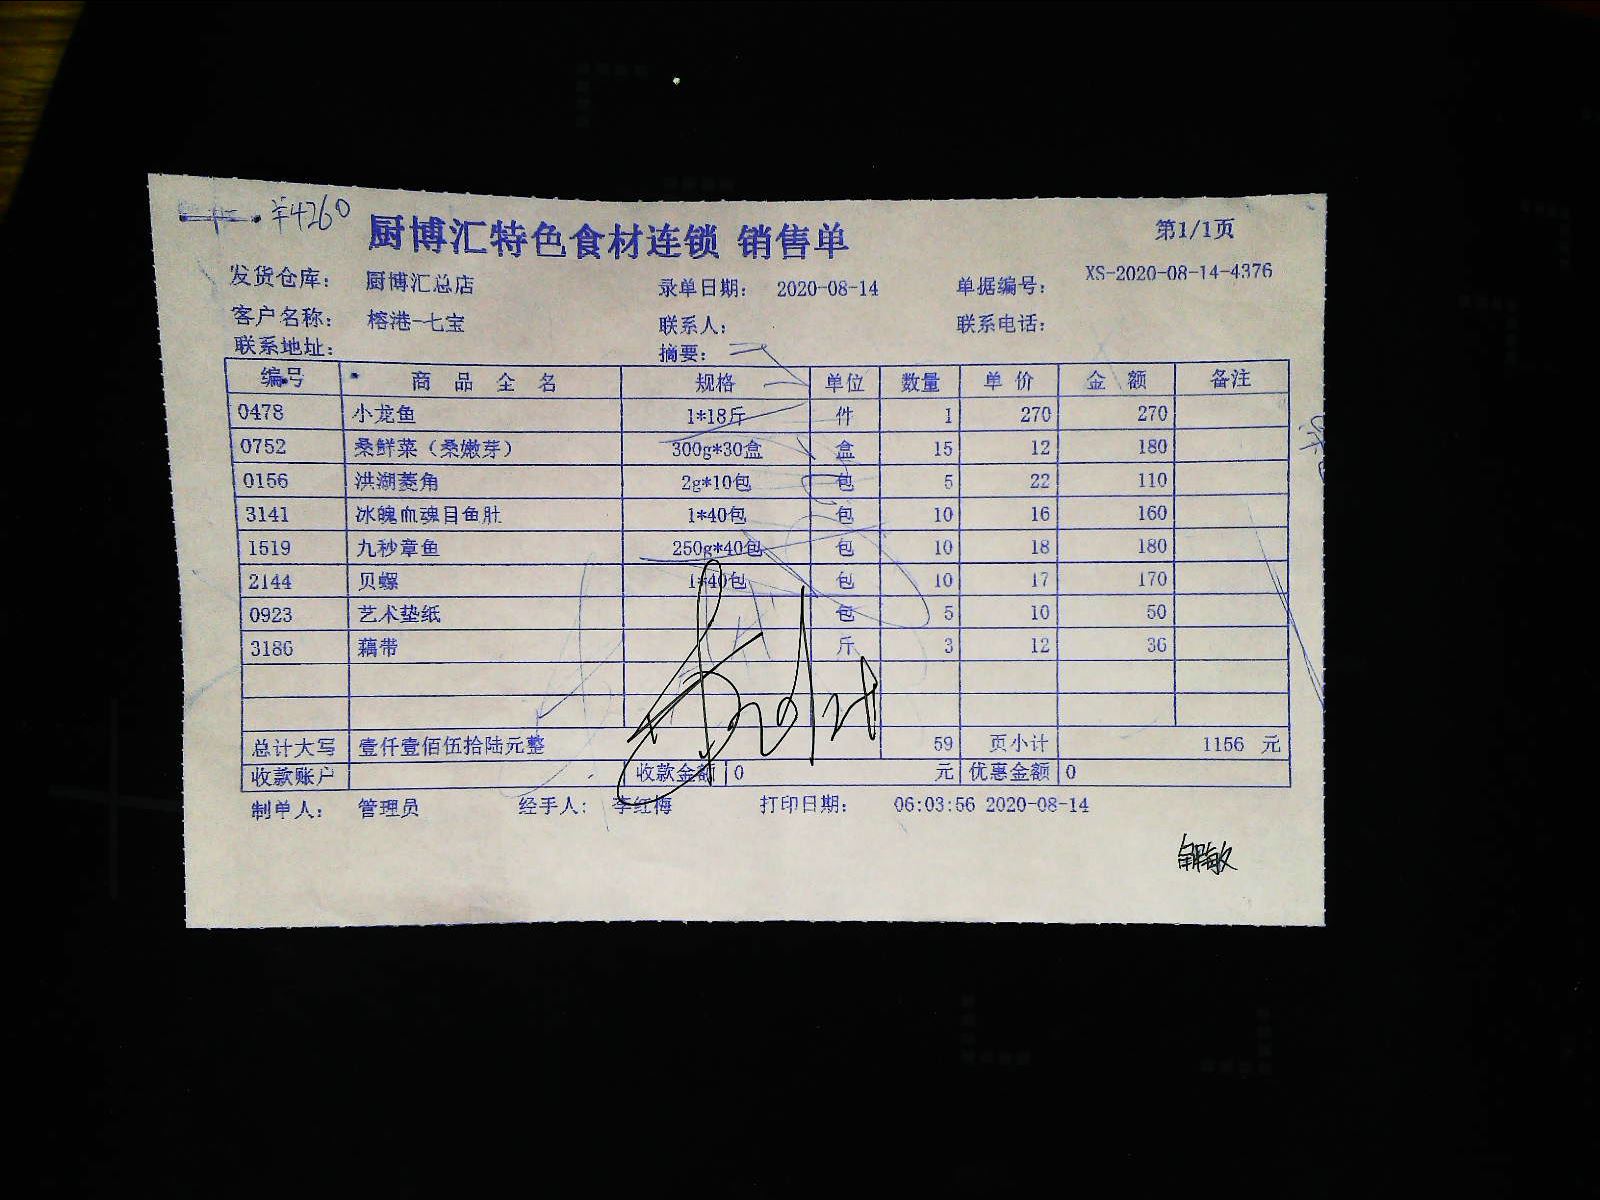 ¥4260
厨博汇特色食材连锁 销售单
第1/1页
发货仓库： 厨博汇总店 录单日期： 2020-08-14 单据编号： XS-2020-08-14-4376
客户名称： 榕港-七宝 联系人： 联系电话：
联系地址： 摘要：
编号 商品全名 规格 单位 数量 单价 金额 备注
0478 小龙鱼 1*18斤 件 1 270 270
0752 桑鲜菜（桑嫩芽） 300g*30盒 盒 15 12 180
0156 洪湖菱角 2g*10包 包 5 22 110
3141 冰魄血魂目鱼肚 1*40包 包 10 16 160
1519 九秒章鱼 250g*40包 包 10 18 180
2144 贝螺 1*40包 包 10 17 170
0923 艺术垫纸 包 5 10 50
3186 藕带 斤 3 12 36
总计大写 壹仟壹佰伍拾陆元整 59 页小计 1156 元
收款账户 收款金额 0 元 优惠金额 0
制单人： 管理员 经手人： 李红梅 打印日期： 06:03:56 2020-08-14